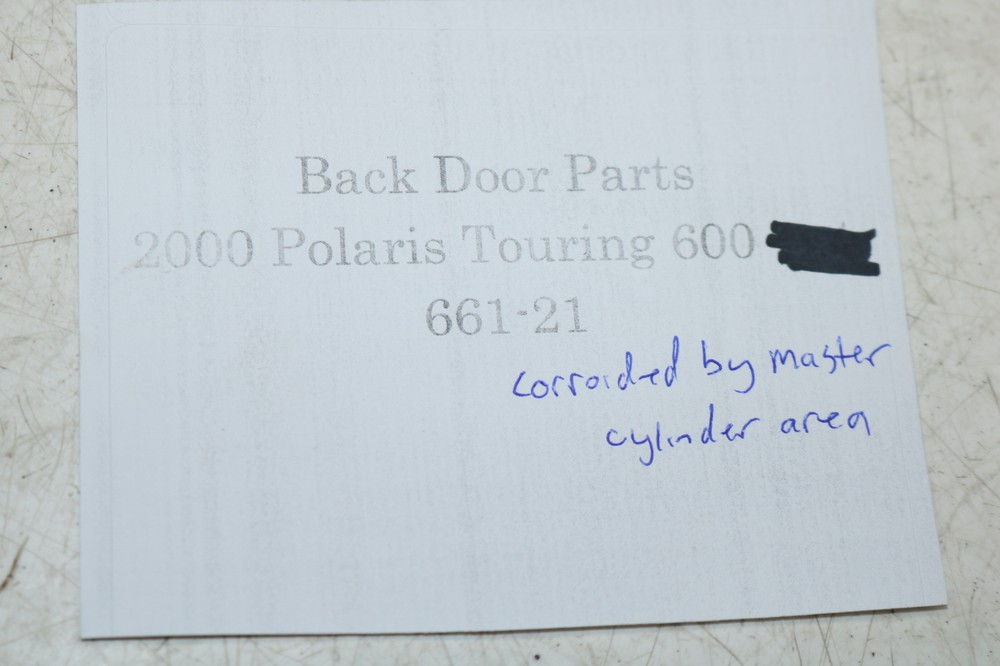 Back Door Parts
2000 Polaris Touring 600
661-21
corroided by master
cylinder area